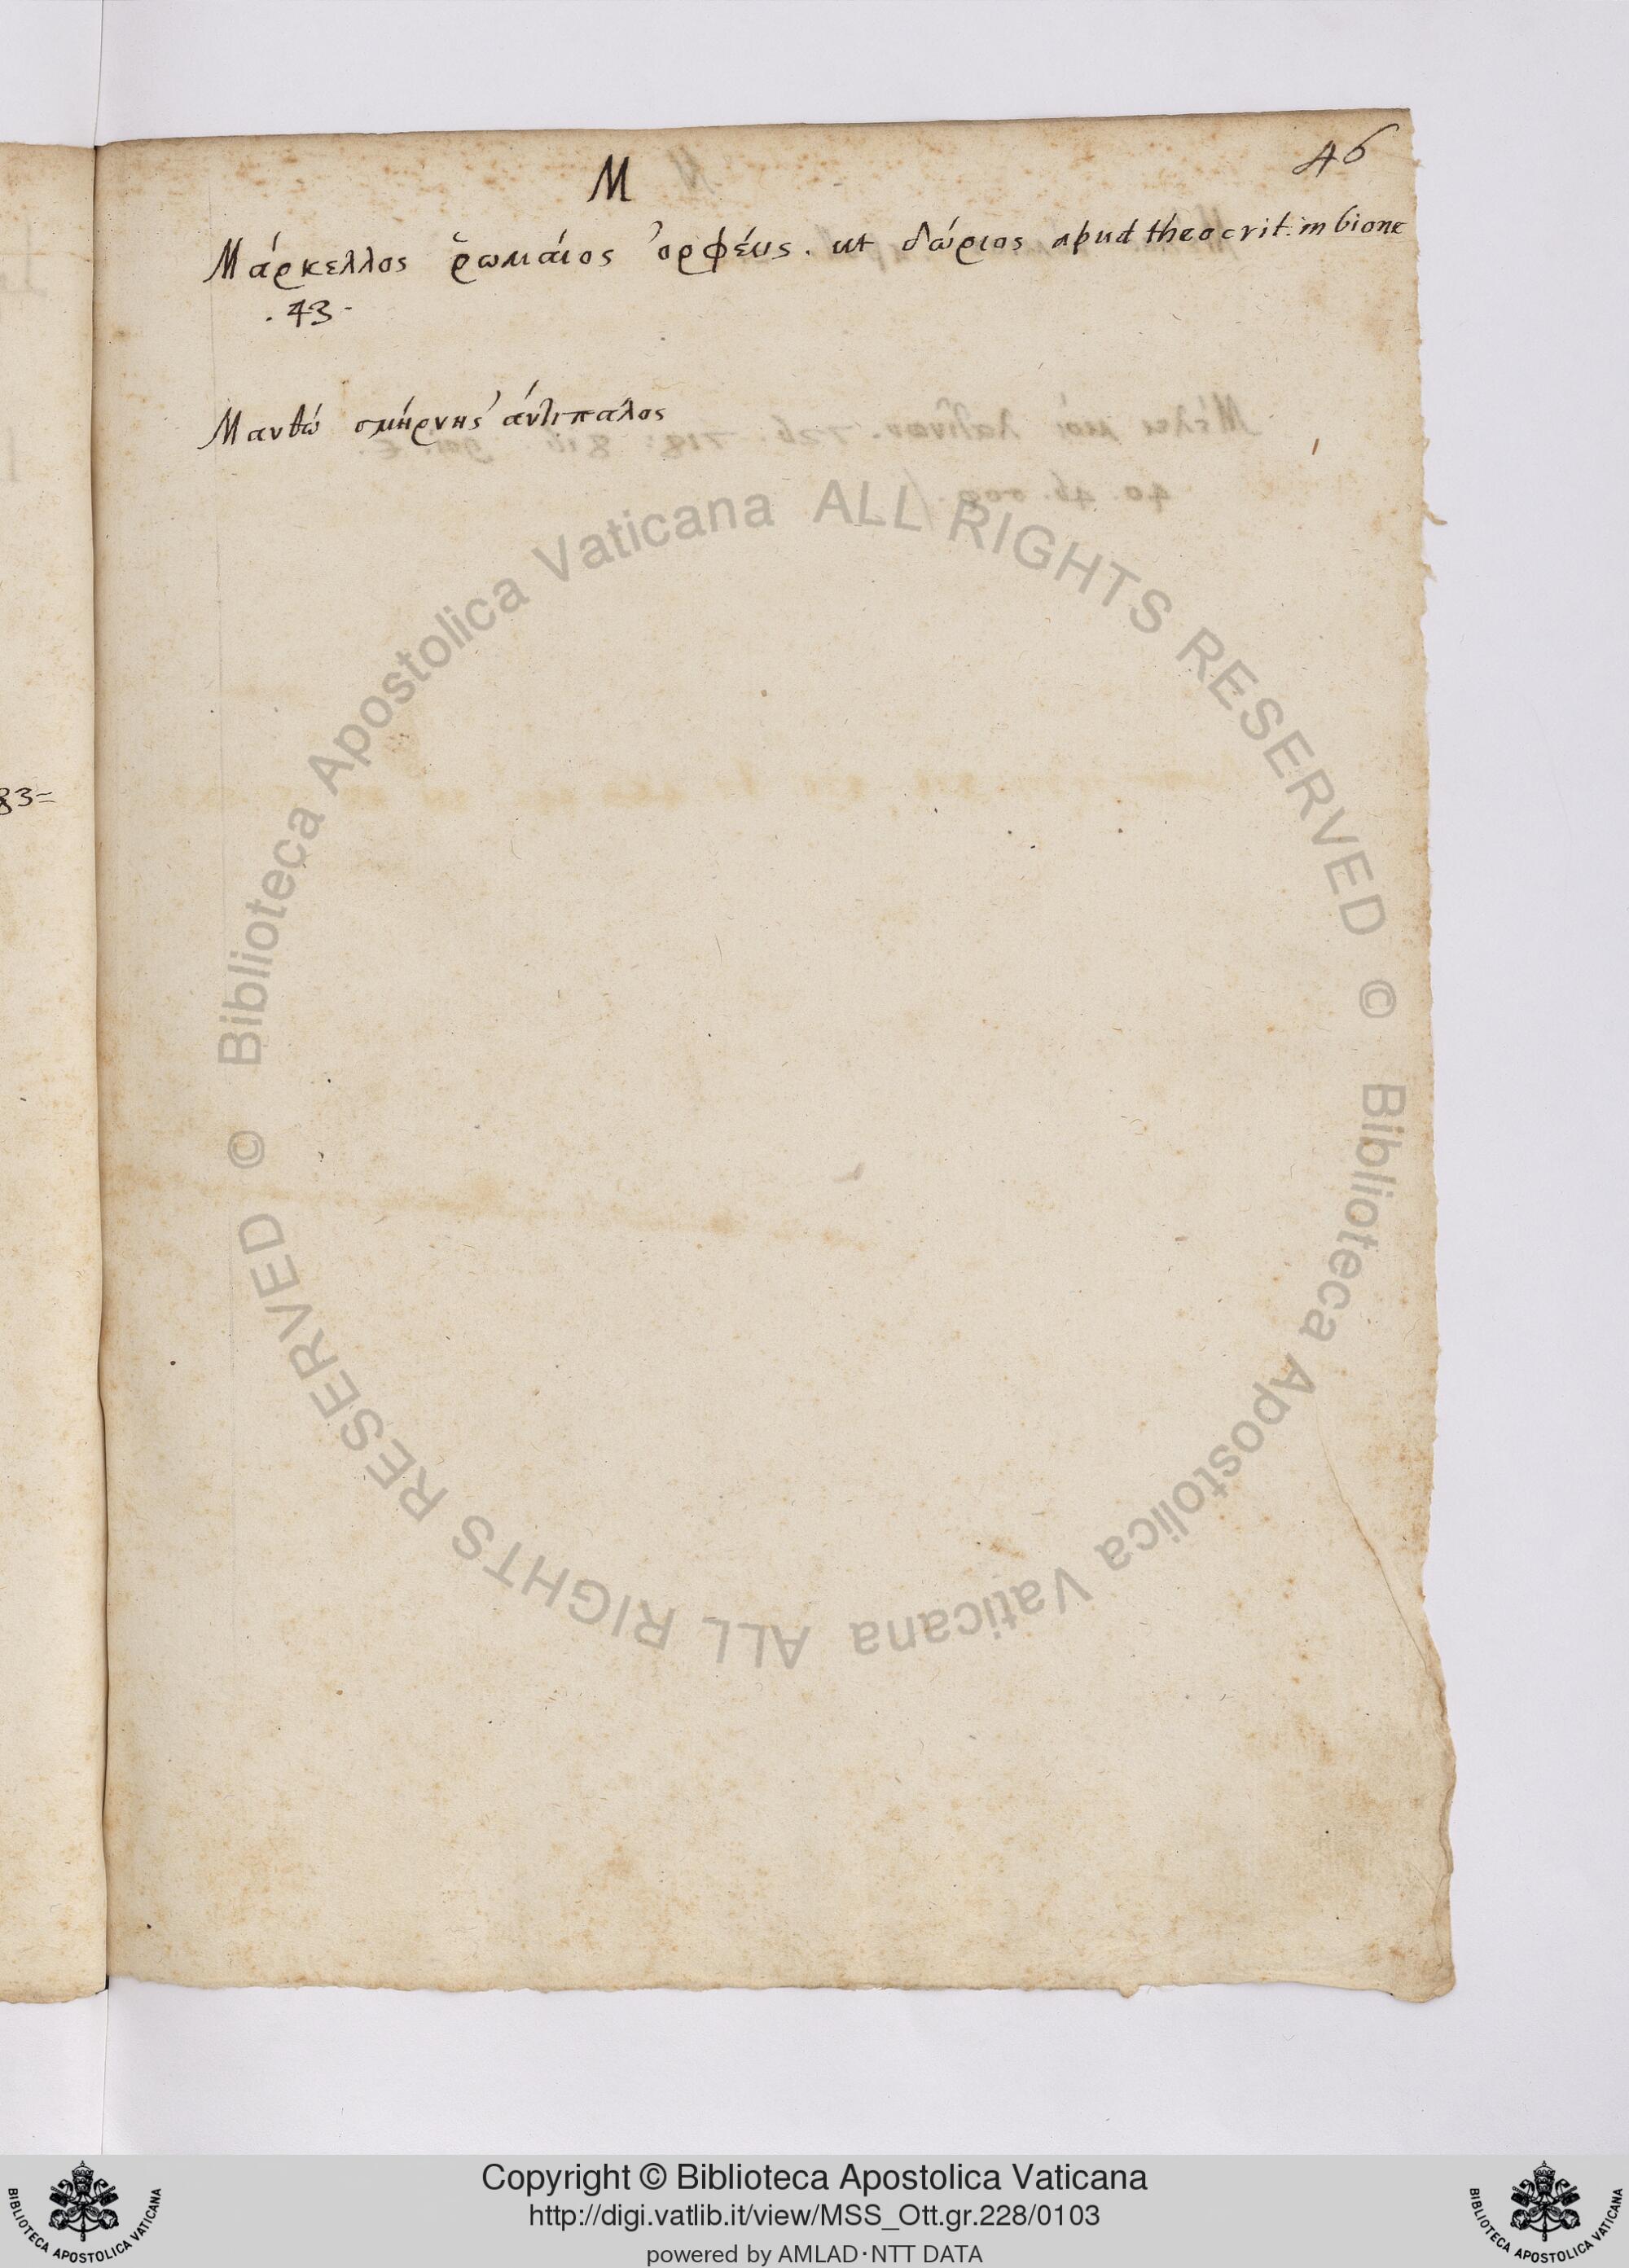 46
M
Μάρκελλος ῥωμάιος ὀρφέυς. ut δώριος apud theocrit. in bione
. 43 -
Μαντώ σμήρνης ἀντιπαλος
83=
© Biblioteca Apostolica Vaticana ALL RIGHTS RESERVED
© Biblioteca Apostolica Vaticana ALL RIGHTS RESERVED
Copyright © Biblioteca Apostolica Vaticana
http://digi.vatlib.it/view/MSS_Ott.gr.228/0103
powered by AMLAD·NTT DATA
BIBLIOTECA APOSTOLICA VATICANA
BIBLIOTECA APOSTOLICA VATICANA